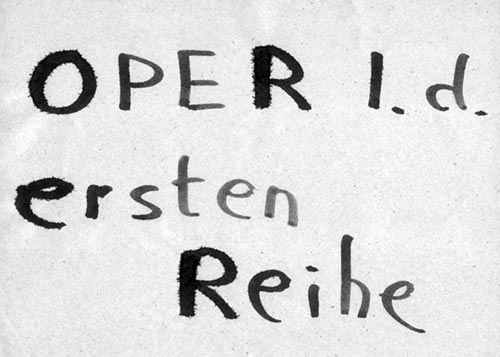 OPER I.d.
ersten
Reihe